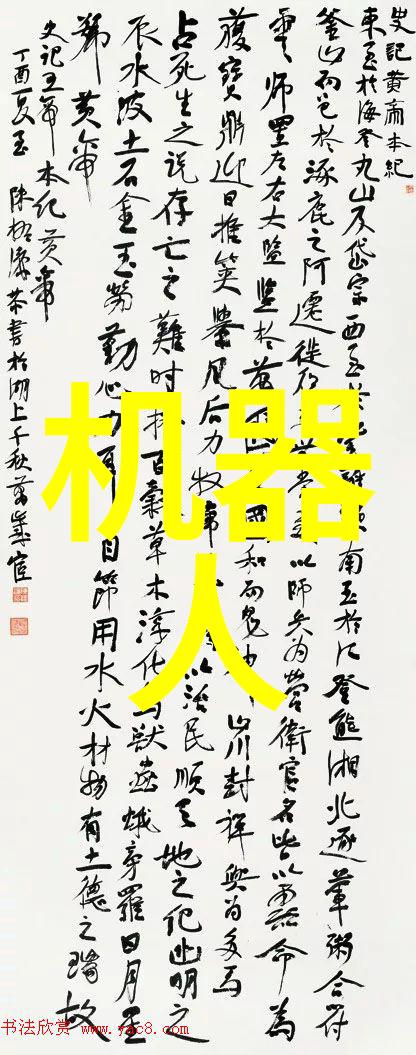 史記黄帝本紀
東至於海登丸山及岱宗西至於南至於江登熊湘北逐葷粥合符
釜山而邑於涿鹿之阿遷徙以師兵为營衛官名皆以雲命為
雲師置左右大監監於萬國和而鬼神山川封禪與为多焉
獲寶鼎迎日推筴舉風后力牧以治民順天地之紀幽明之
占死生之說存亡之難時播百穀草木淳化鳥獸蟲蛾旁羅日月星
辰水波土石金玉勞勤心力耳目節用水火材物有土德之瑞故
號黄帝
史記五帝本紀黄帝
丁酉夏至 陳恭書於湖上千秋萬歲宧
机器
人
书法欣赏 www.yac8.com